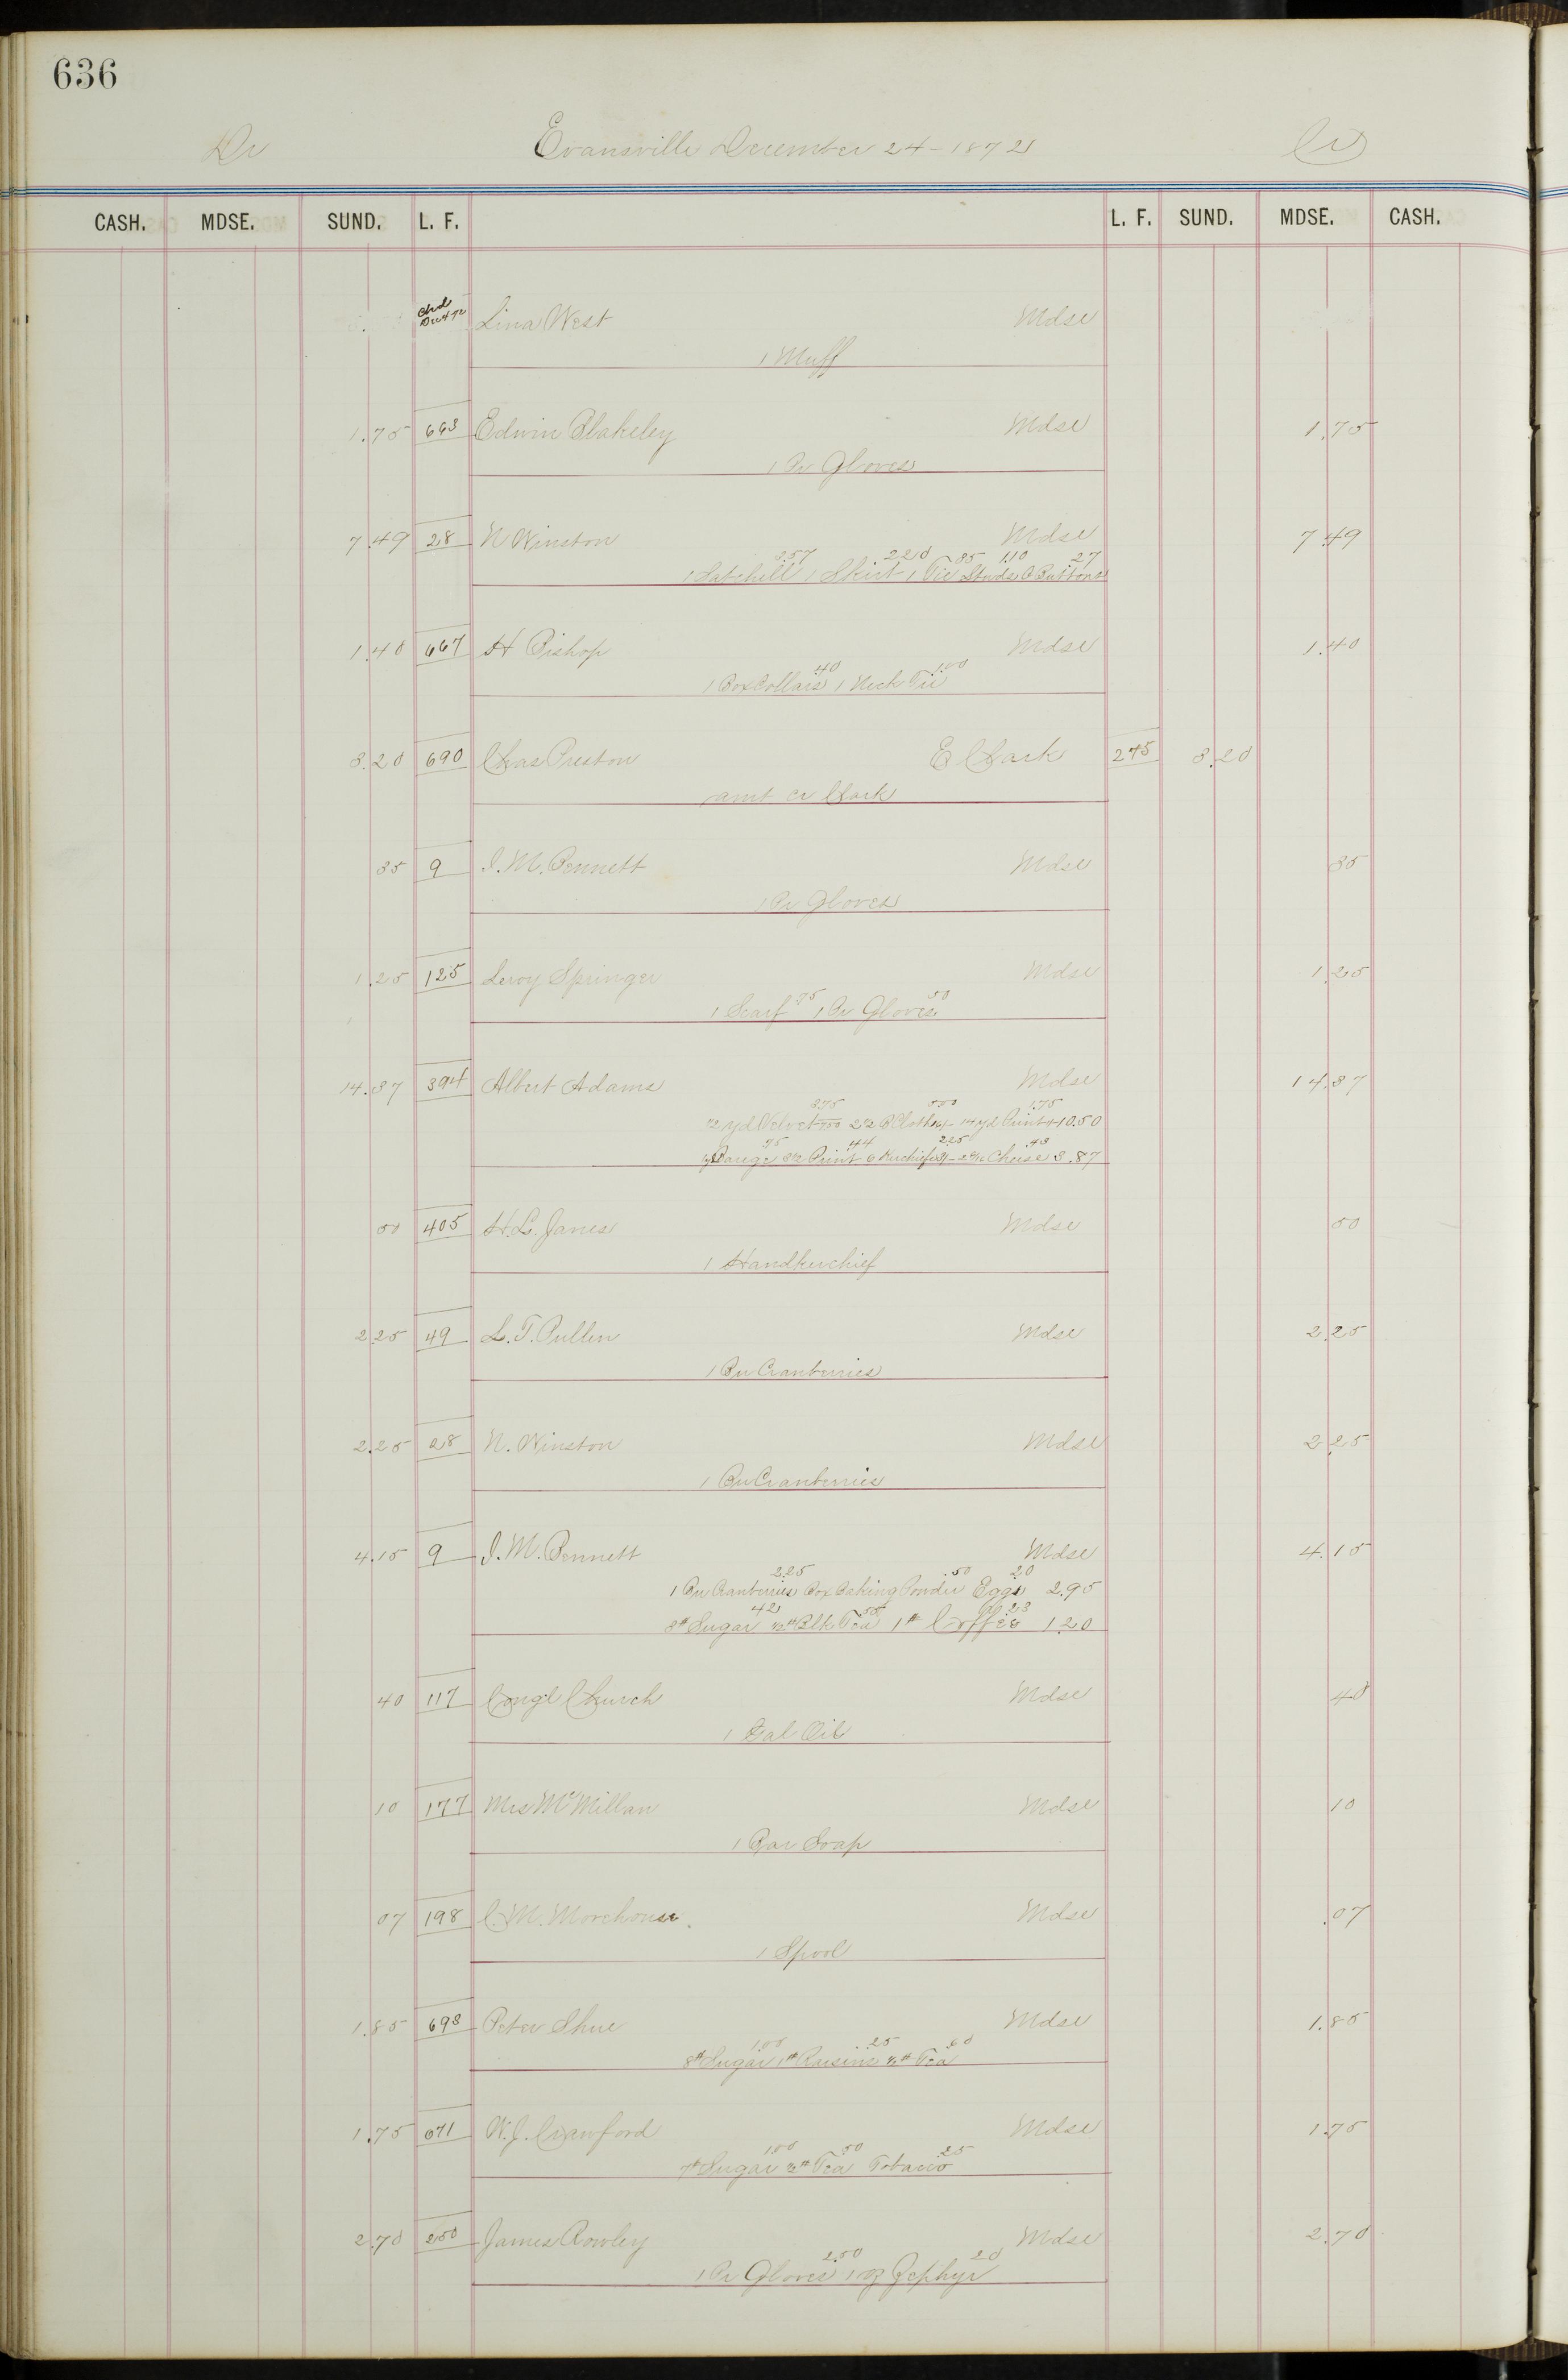 636
Dr Evansville December 24-1872 Cr
CASH. MDSE. SUND. L. F. L. F. SUND. MDSE. CASH.
Lina West Mdse
1 Muff
1.75 663 Edwin Blakeley Mdse 1.75
1 Pr Gloves
7.49 28 N Winston Mdse 7.49
2.20 .85 1.10 27
1 Satchell 1 Skirt 1 Tie Studs Buttons
1.40 667 H Bishop Mdse 1.40
.40 1.00
1 Box Collars 1 Neck Tie
3.20 690 Chas Preston E Clark 275 3.20
amt cr Clark
85 9 I. M. Bennett Mdse 85
1 Pr Gloves
1.25 125 Leroy Springer Mdse 1.25
1 Scarf .75 1 Pr Gloves 50
14.37 394 Albert Adams Mdse 14.37
3.75 5.00 1.75
yd Velvet Cloth 14 yd Print 10.50
75 .44 2.25 .43
Print 6 Kerchiefs Cheese 3.87
50 405 H. L. Janes Mdse 50
1 Handkerchief
2.25 49 L. T. Pullen Mdse 2.25
1 Bu Cranberries
2.25 28 N. Winston Mdse 2.25
1 Bu Cranberries
4.15 9 I. M. Bennett Mdse 4.15
2.25 .50 20
1 Bu Cranberries Box Baking Powder Eggs 2.95
42 55 23
3# Sugar ½# Blk Tea 1# Coffee 1.20
40 117 Congl Church Mdse 40
1 Gal Oil
10 177 Mrs McMillan Mdse 10
1 Bar Soap
07 198 C. M. Morehouse Mdse .07
1 Spool
1.85 693 Peter Shue Mdse 1.85
1.00 .25 60
8# Sugar 1# Raisins ½# Tea
1.75 671 W. J. Crawford Mdse 1.75
1.00 50 25
7# Sugar ½# Tea Tobacco
2.70 250 James Rowley Mdse 2.70
2.50 20
1 Pr Gloves 1 oz Zephyr